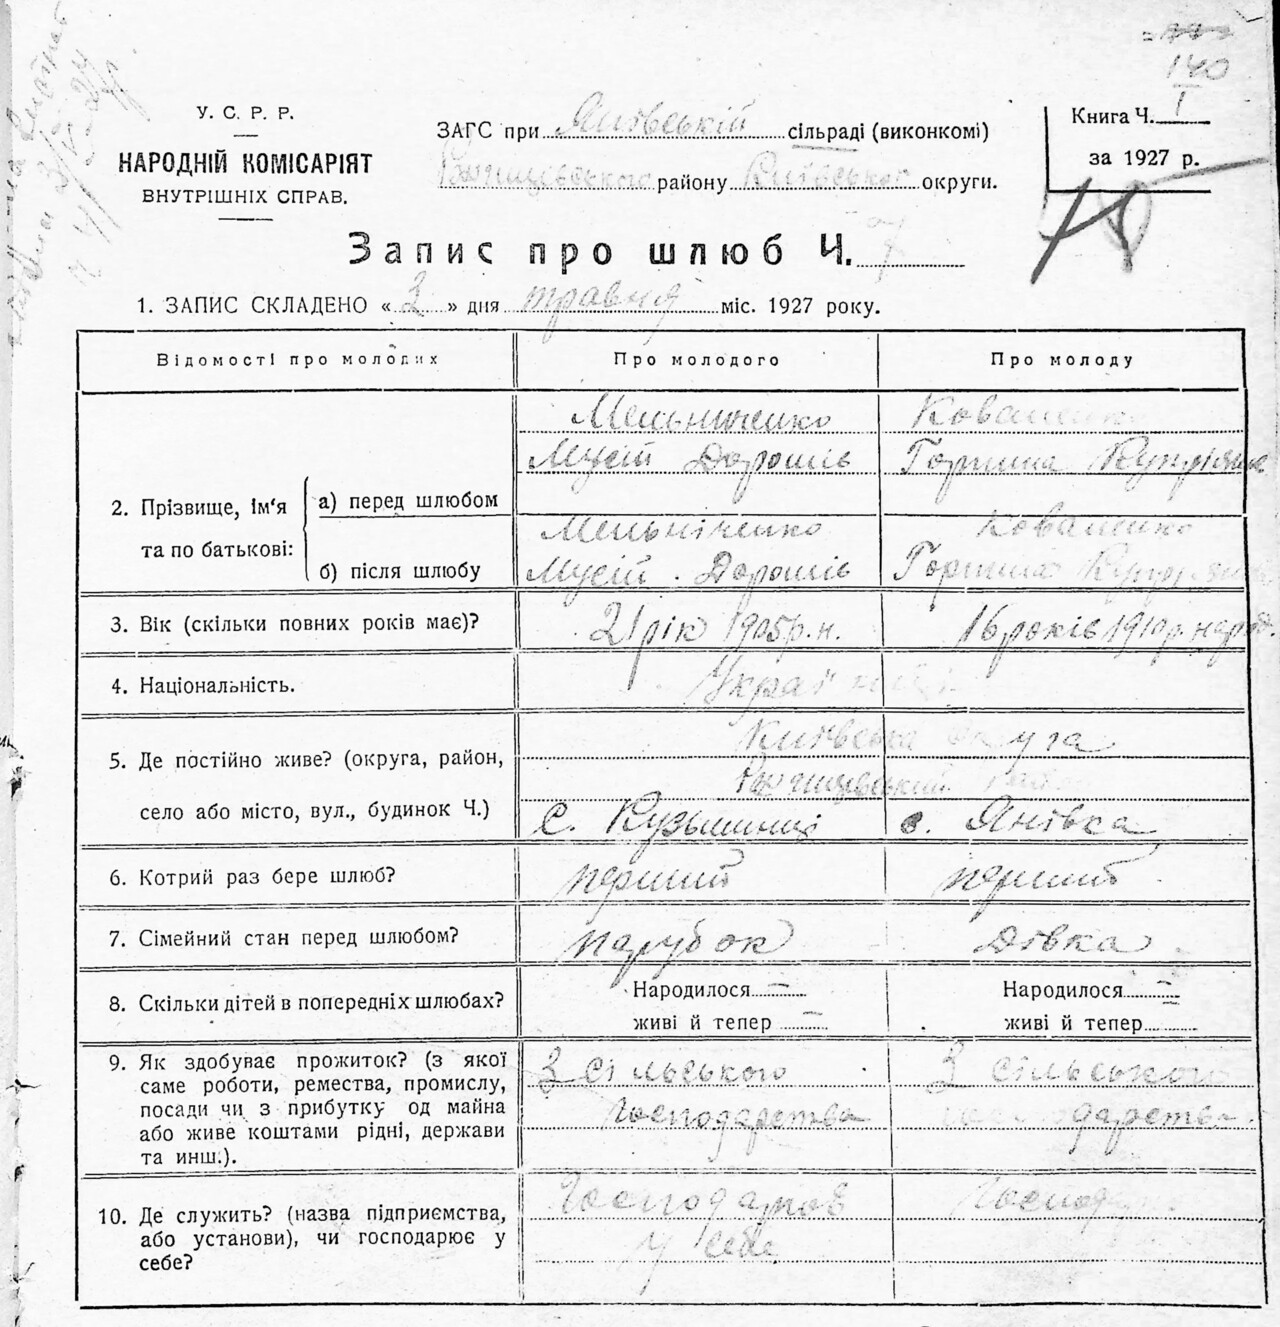 140
У. С. Р. Р.
НАРОДНІЙ КОМІСАРІЯТ
ВНУТРІШНІХ СПРАВ.
ЗАГС при Янівській сільраді (виконкомі)
району Київської округи.
Книга Ч. 1
за 1927 р.
Запис про шлюб Ч. 7
1. ЗАПИС СКЛАДЕНО « 3 » дня травня міс. 1927 року.
Відомості про молодих
Про молодого
Про молоду
2. Прізвище, ім'я та по батькові:
а) перед шлюбом
Мельниченко
Мусій Дорошів
Коваленко
Горпина
б) після шлюбу
Мельніченко
Мусій Дорошів
Коваленко
Горпина
3. Вік (скільки повних років має)?
21 рік 1905 р. н.
16 років 1910 р. народ.
4. Національність.
Українці
5. Де постійно живе? (округа, район,
село або місто, вул., будинок Ч.)
Київська округа
с. Кузьминці
с. Янівка
6. Котрий раз бере шлюб?
перший
перший
7. Сімейний стан перед шлюбом?
парубок
дівка
8. Скільки дітей в попередніх шлюбах?
Народилося —
живі й тепер —
Народилося —
живі й тепер —
9. Як здобуває прожиток? (з якої
саме роботи, ремества, промислу,
посади чи з прибутку од майна
або живе коштами рідні, держави
та инш.).
З сільського
господарства
З сільського
господарства
10. Де служить? (назва підприємства,
або установи), чи господарює у
себе?
у себе